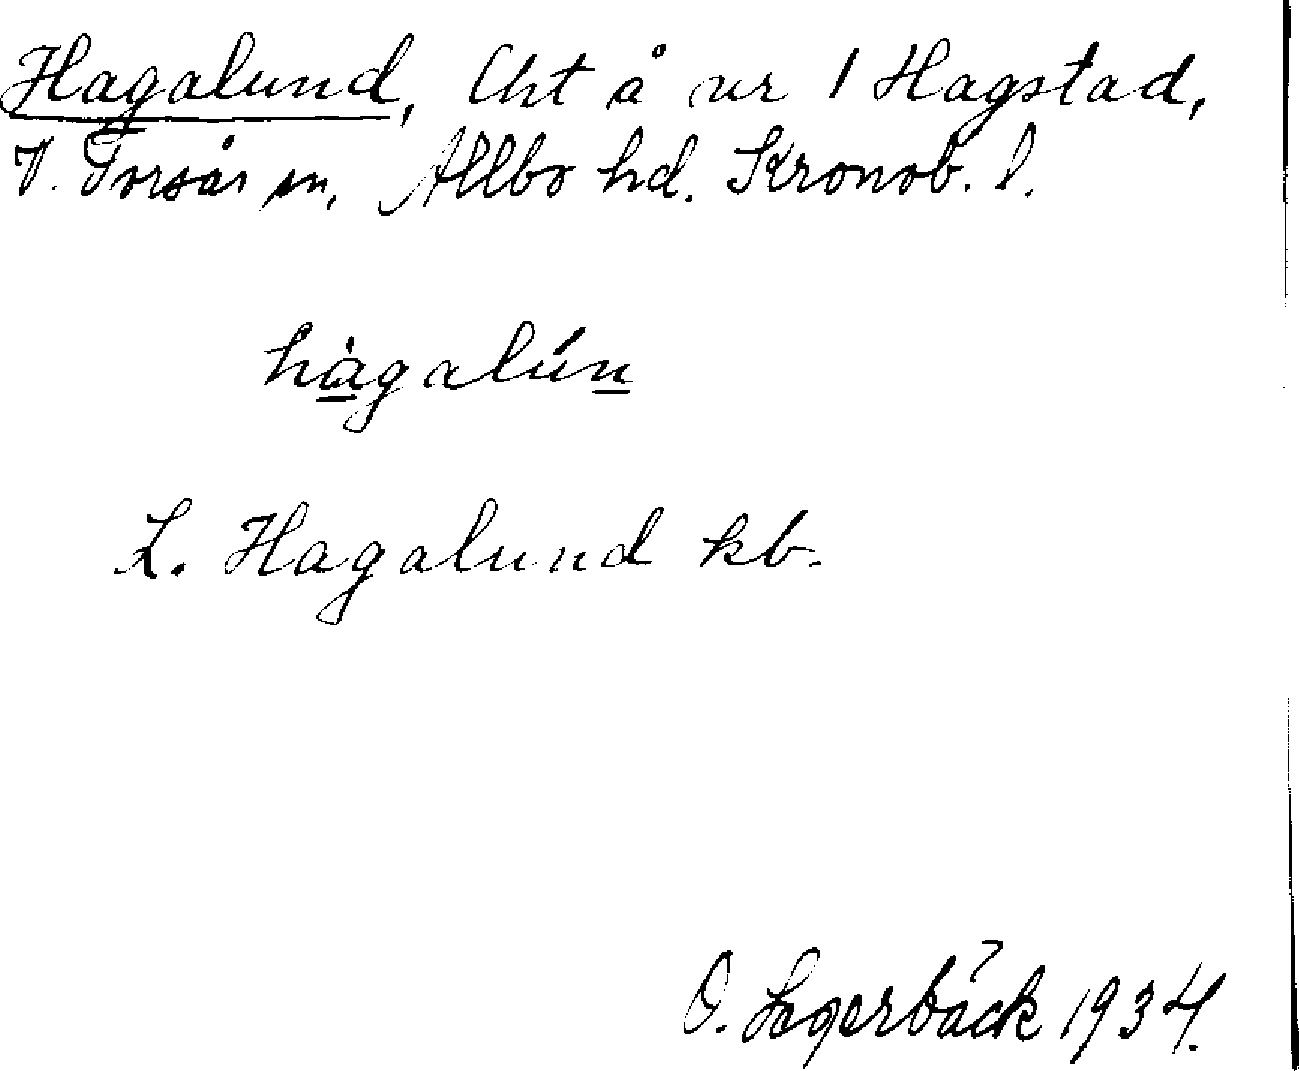 Hagalund, Lht å nr 1 Hagstad,
V. Torsås sn, Allbo hd. Kronob. l.
hàgalún
L. Hagalund kb.
O. Segerbäck 1934.